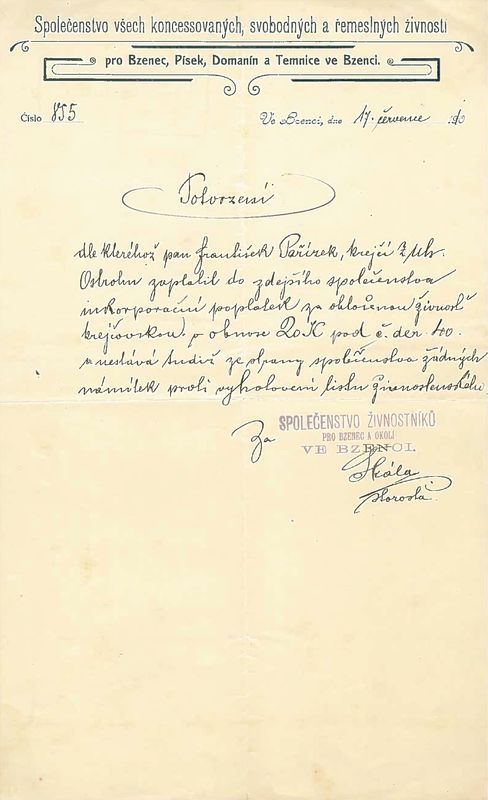 Společenstvo všech koncessovaných, svobodných a řemeslných živností
pro Bzenec, Písek, Domanín a Temnice ve Bzenci.
Číslo 855
Ve Bzenci, dne 17. července
Potvrzení
dle kteréhož pan František Pařízek, krejčí z Uh.
Ostrohu zaplatil do zdejšího společenstva
inkorporační poplatek za ohlášenou živnosť
krejčovskou o obnose 20 K pod č. den 40.
a nestává tudíž ze strany společenstva žádných
námitek proti vyhotovení listu živnostenského
Za
SPOLEČENSTVO ŽIVNOSTNÍKŮ
PRO BZENEC A OKOLÍ
VE BZENCI.
Skála
starosta